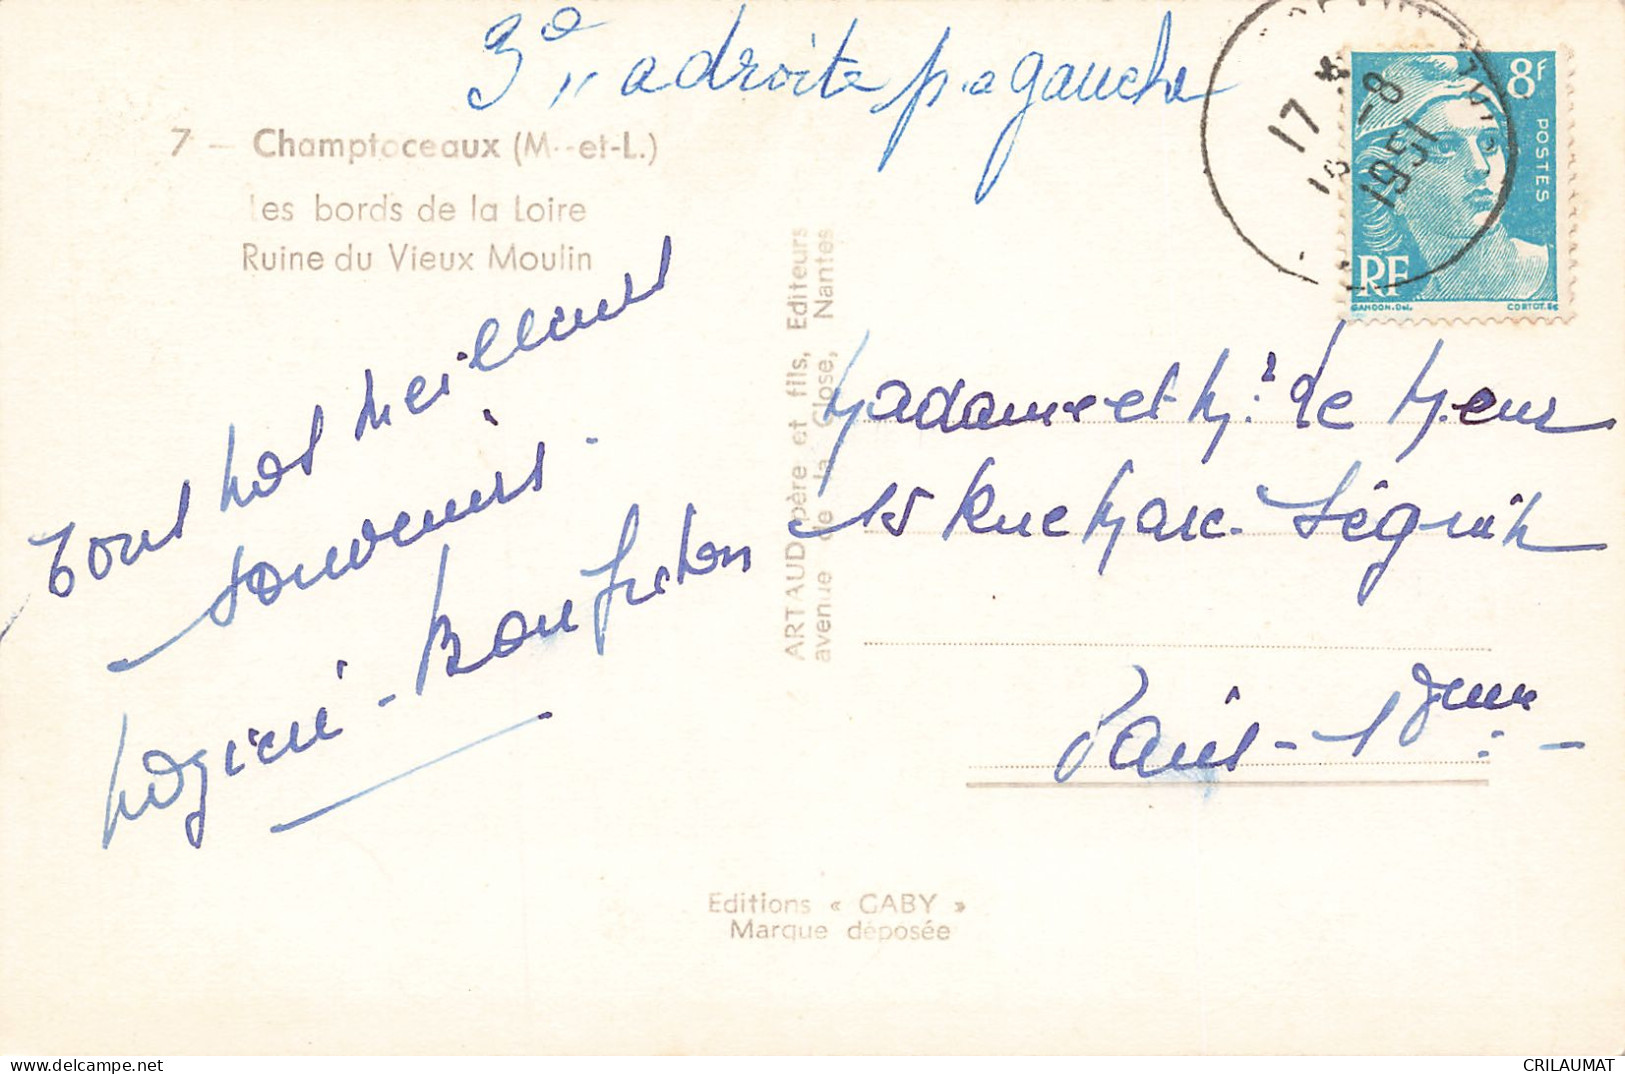 3e " a droite p. a gauche
7 - Champtoceaux (M.-et-L.)
Les bords de la Loire
Ruine du Vieux Moulin
Tous nos meilleurs
souvenirs.
ARTAUD père et fils, Editeurs
avenue de la Close, Nantes
17 * 
18 -8
1951
8F
POSTES
RF
GANDON.Del.
CORTOT.Sc
Madame et Mr. Le Meur
15 Rue Marc Séguin
Paris - 18eme -
Editions « GABY »
Marque déposée
CRILAUMAT